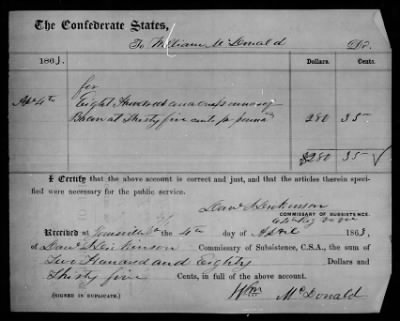 The Confederate States,
To William McDonald Dr.
1863. Dollars. Cents.
for
Apl 4th Eight Hundred and one
Bacon at Thirty five cents pr pound 280 35
$280 35
I Certify that the above account is correct and just, and that the articles therein specified
were necessary for the public service.
COMMISSARY OF SUBSISTENCE.
Received at the 4th day of April 1863,
of Commissary of Subsistence, C.S.A., the sum of
Two Hundred and Eighty Dollars and
Thirty five Cents, in full of the above account.
(SIGNED IN DUPLICATE.) Wm McDonald